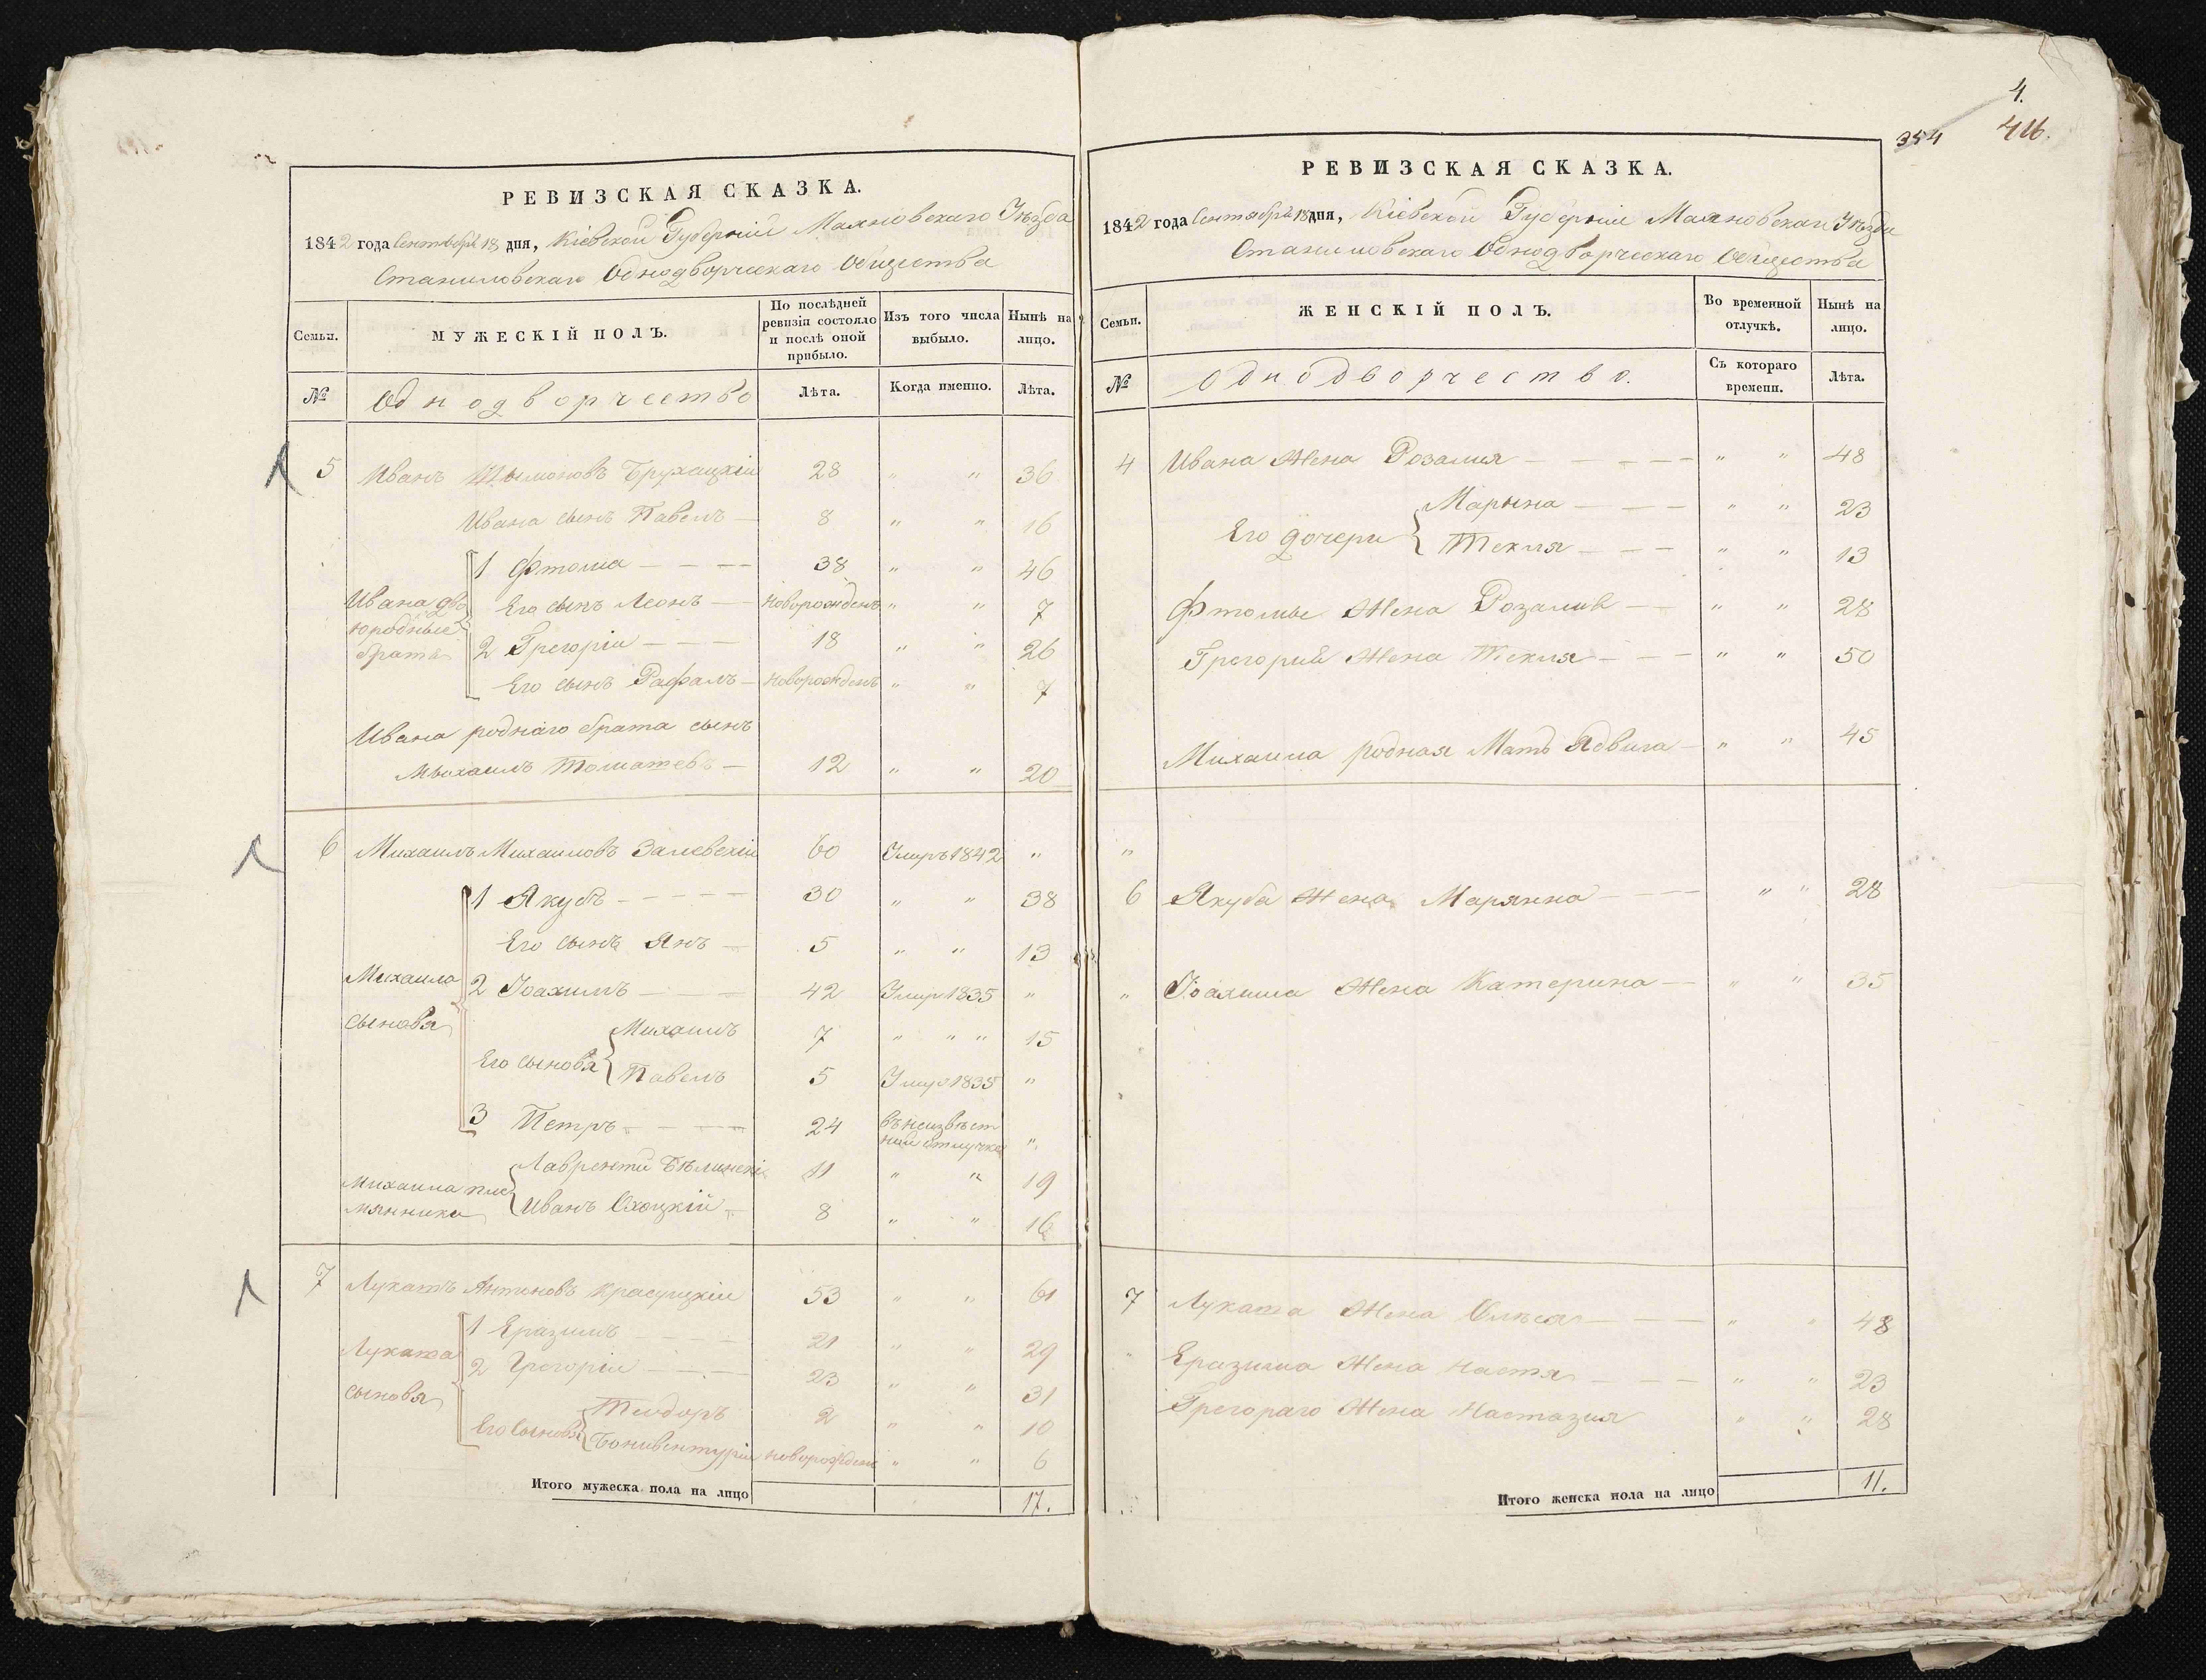 РЕВИЗСКАЯ СКАЗКА.
1842 года Сентября 18 дня, Кіевской Губерніи Махновскаго Уѣзда
Станиловскаго Однодворческаго Общества
Семьи.
МУЖЕСКІЙ ПОЛЪ.
По послѣдней ревизіи состояло и послѣ оной прибыло.
Изъ того числа выбыло.
Нынѣ на лицо.
№
Однодворчество
Лѣта.
Когда именно.
Лѣта.
5 Иванъ Шымоновъ Брухацкій 28 " " 36
Ивана сынъ Павелъ — 8 " " 16
1 Фтома — — — 38 " " 46
Ивана дво
Его сынъ Леонъ — Новорожденъ " " 7
юродные
2 Грегорій — — — 18 " " 26
брата
Его сынъ Рафалъ — Новорожденъ " " 7
Ивана роднаго брата сынъ
Михаилъ Томашевъ — 12 " " 20
6 Михаилъ Михаиловъ Залевскій 60 Умеръ 1842 "
1 Якубъ — — — — 30 " " 38
Его сынъ Янъ — 5 " " 13
Михаила
2 Іоахимъ — — 42 Умер 1835 "
сыновя
Михаилъ 7 " " " 15
Его сыновя
Павелъ 5 Умер 1835 "
3 Петръ — — — 24 въ неизвѣст
ной отлучке "
Лаврентій Бѣлинскі 11 " " 19
Михаила пле
мянники
Иванъ Охоцкій — 8 " " 16
7 Лукашъ Антоновъ Красуцкій 53 " " 61
1 Еразимъ — — — — 21 " " 29
Лукаша
2 Грегорій — — — 23 " " 31
сыновя
Теодоръ 2 " " 10
Его сыновя
Бонивентурій новорожден " " 6
Итого мужеска пола на лицо 17.
4.
354 416.
РЕВИЗСКАЯ СКАЗКА.
1842 года Сентября 18 дня, Кіевской Губерніи Махновскаго Уѣзда
Станиловскаго Однодворческаго Общества
Семьи.
ЖЕНСКІЙ ПОЛЪ.
Во временной отлучкѣ.
Нынѣ на лицо.
№
Однодворчество.
Съ котораго времени.
Лѣта.
4 Ивана Жена Розалия — — — — — " " 48
Марына — — — " " 23
Его дочери
Текля — — — " " 13
Фтомы Жена Розалия — — " " 28
Грегорія Жена Текля — — — " " 50
Михаила родная Мать Ядвига — " " 45
"
6 Якуба Жена Марянна — — — " " 28
" Іоахима Жена Катерина — — " " 35
7 Лукаша Жена Олѣся — — — — " " 48
" Еразима Жена Настя — — — — " " 23
Грегораго Жена Настазия " " 28
Итого женска пола на лицо 11.